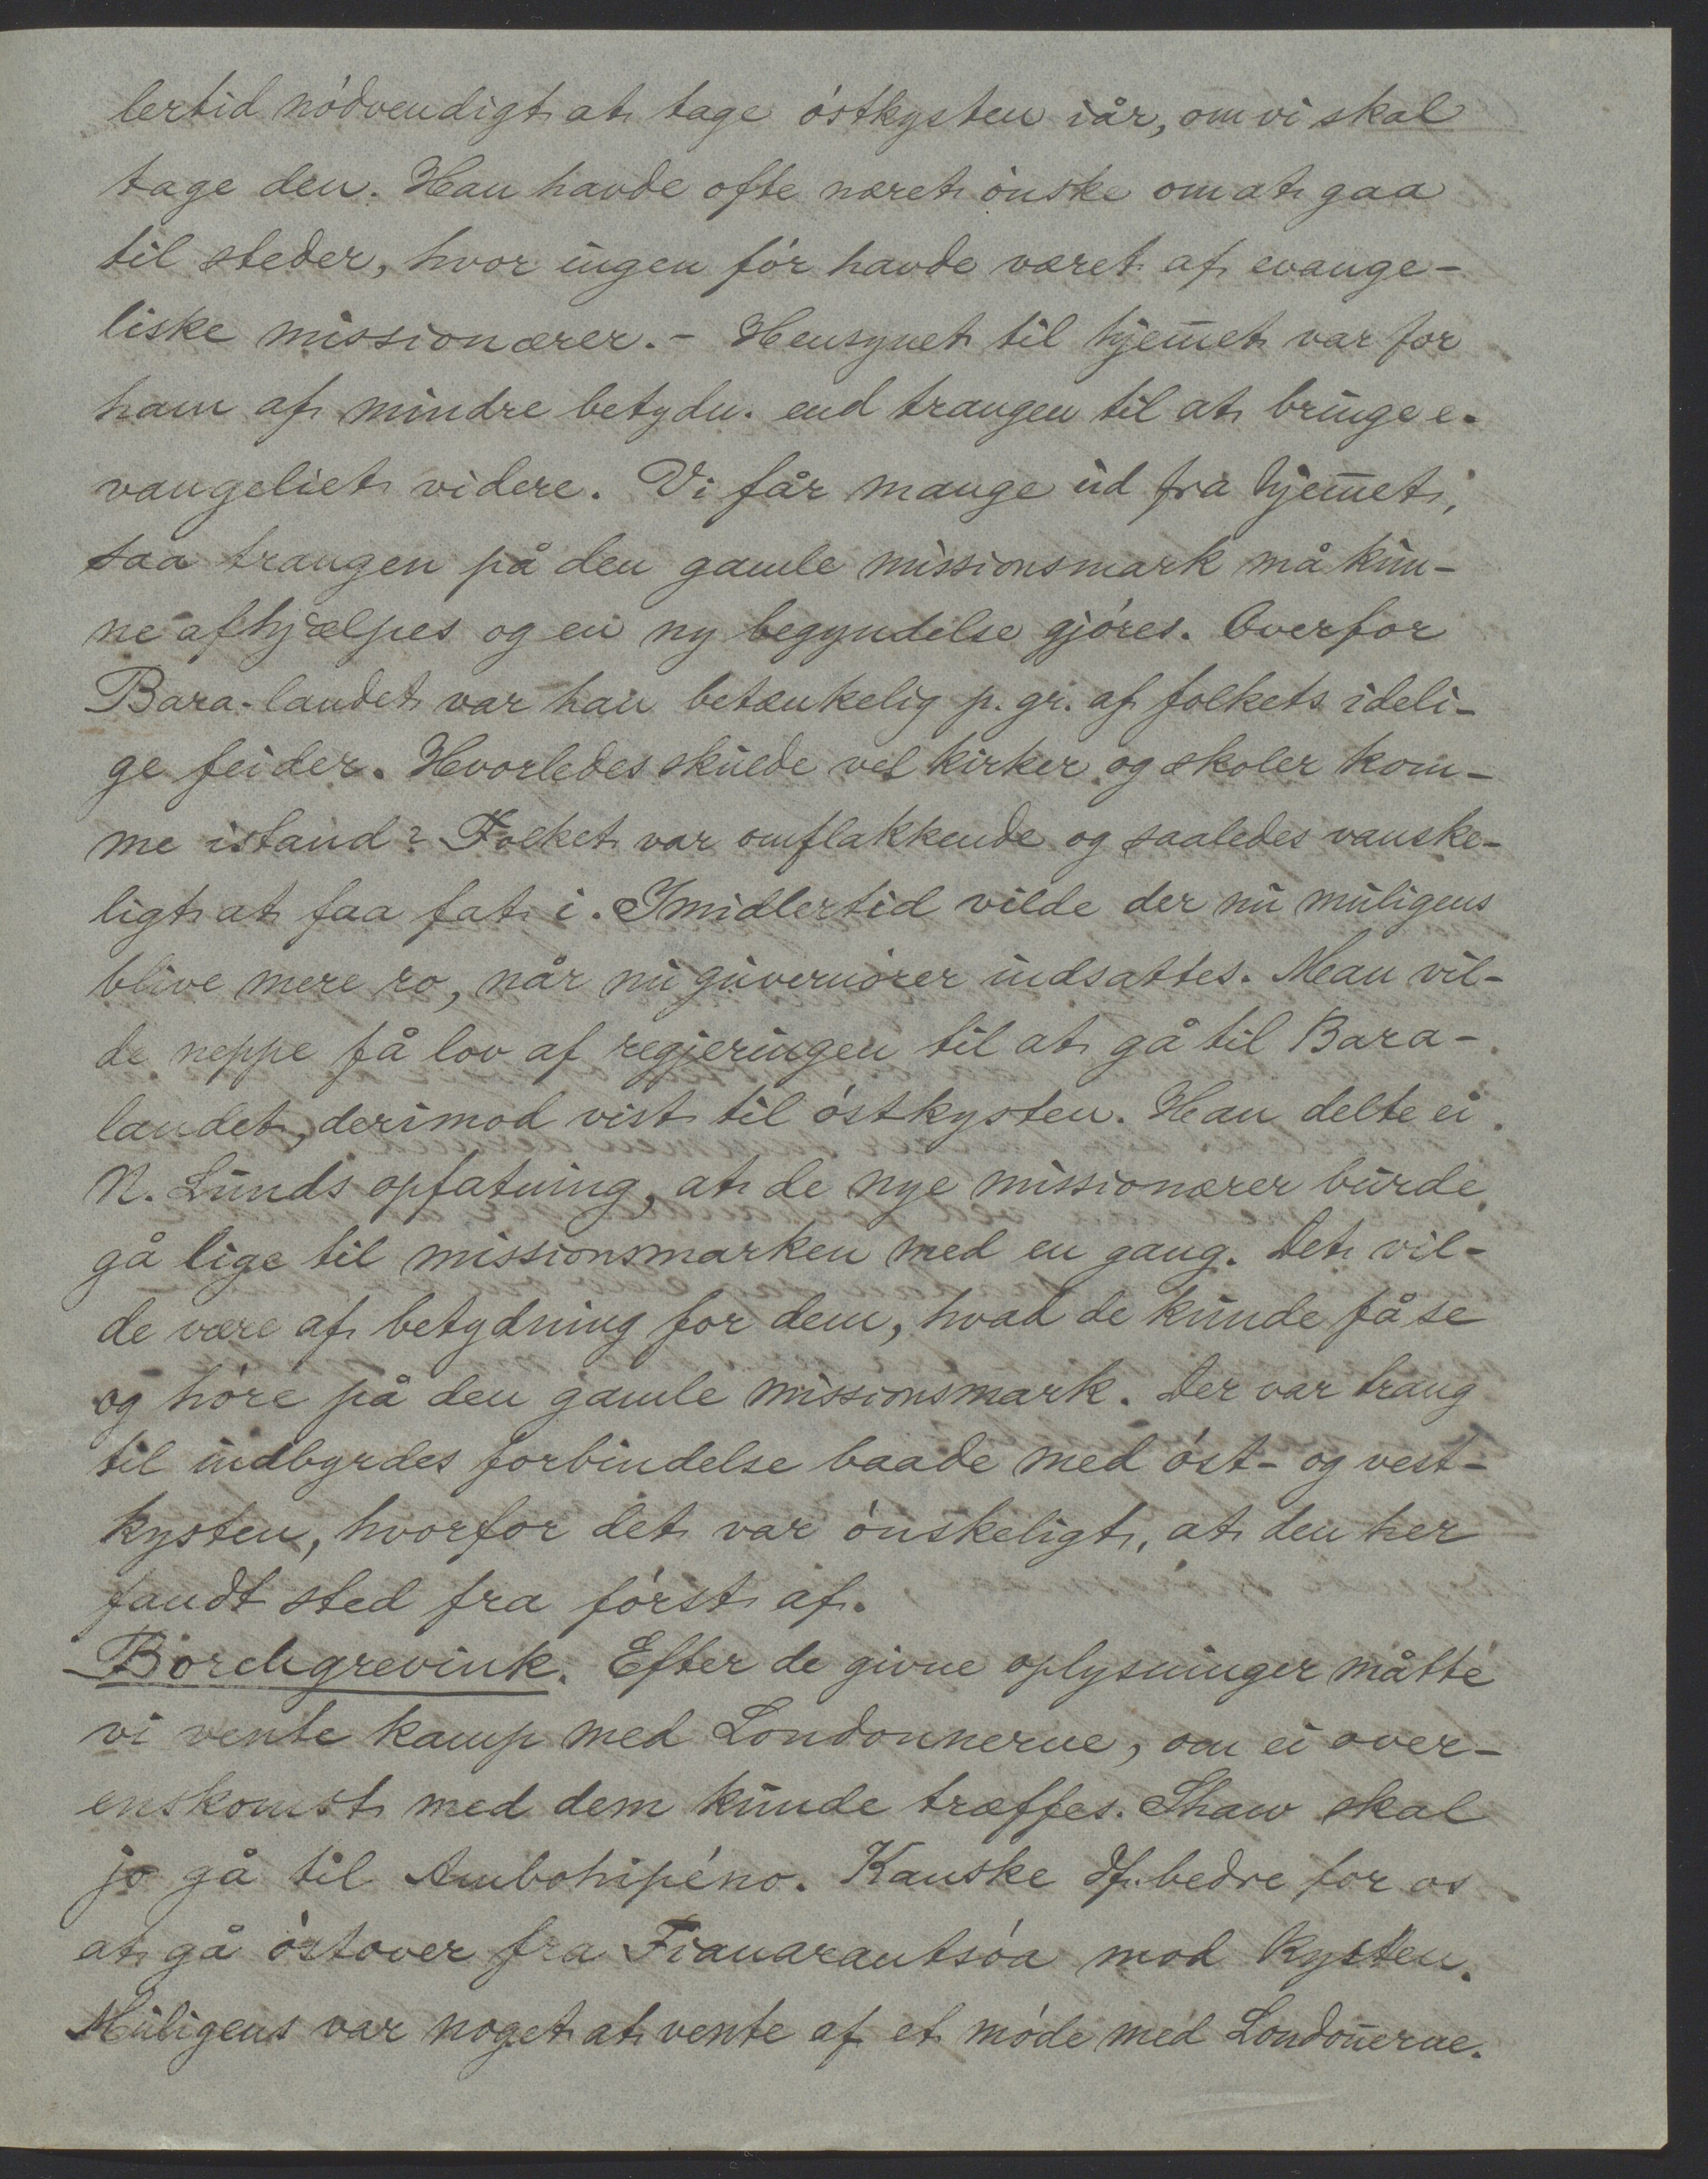 lertid nödvendigt at tage östkysten iår, om vi skal
tage den. Han havde ofte næret önske om at gaa
til steder, hvor ingen för havde været af evange-
liske missionærer. - Hensynet til hjem̄et var for
ham af mindre betydn. end trangen til at bringe e-
vangeliet videre. Vi får mange ud fra hjem̄et,
saa trangen på den gamle missionsmark må kun-
ne afhjælpes og en ny begyndelse gjöres. Overfor
Bara-landet var han betænkelig p. gr. af folkets ideli-
ge feider. Hvorledes skulde vel kirker og skoler kom-
me istand? Folket var omflakkende og saaledes vanske-
ligt at faa fat i. Imidlertid vilde der nu muligens
blive mere ro, når nu guvernörer indsattes. Man vil-
de neppe få lov af regjeringen til at gå til Bara-
landet, derimod vist til östkysten. Han delte ei
N. Lunds opfatning, at de nye missionærer burde
gå lige til missionsmarken med en gang. Det vil-
de være af betydning for dem, hvad de kunde få se
og höre på den gamle missionsmark. Der var trang
til indbyrdes forbindelse baade med öst- og vest-
kysten, hvorfor det var önskeligt, at den her
fandt sted fra först af.
Borchgrevink. Efter de givne oplysninger måtte
vi vente kamp med Londonnerne, om ei over-
enskomst med dem kunde træffes. Shaw skal
jo gå til Ambohipéno. Kanske df. bedre for os
at gå östover fra Fianarantsóa mod kysten.
Muligens var noget at vente af et möde med Londoñerne.